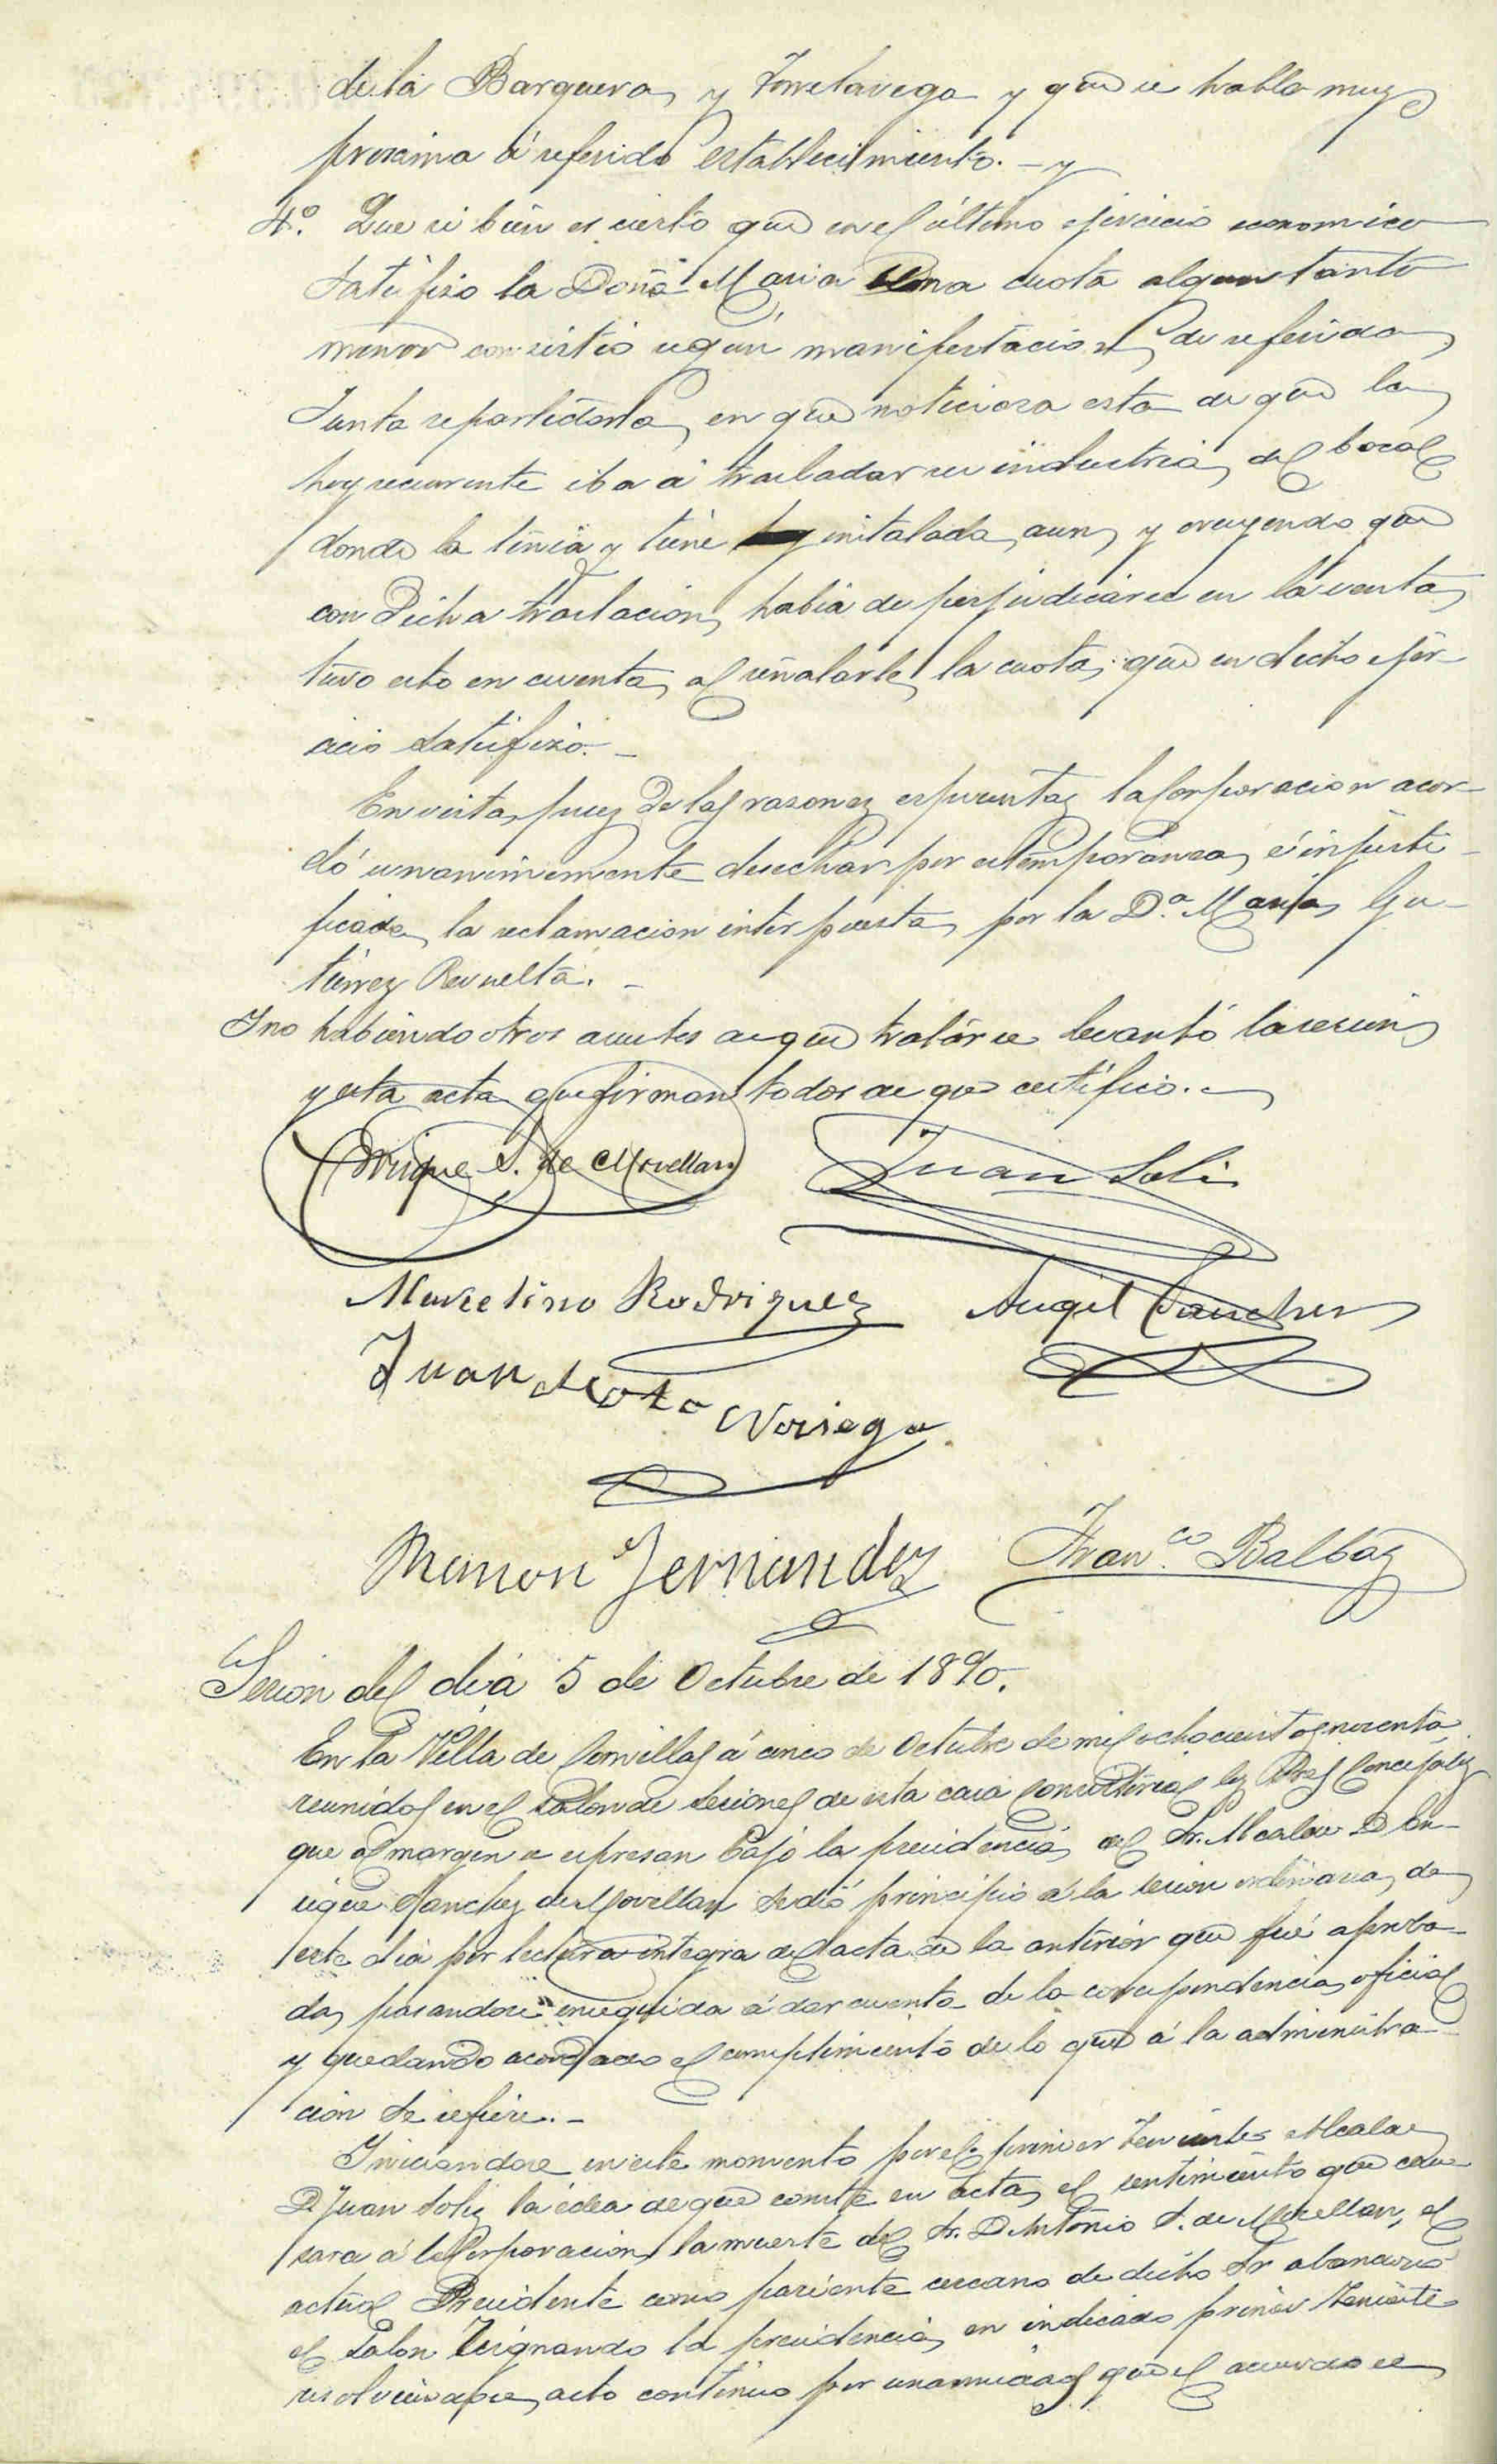 de la Barquera y Torrelavega y que se halla muy
procsima á referido establecimiento. - y
4º. Que si bien es cierto que en el último ejercicio economico
satisfizo la Doña Maria una cuota algun tanto
menor consistió segun manifestacion de referida
Junta repartidora, en que noticiosa esta de que la
hoy recurrente iba á trasladar su industria, del local
donde la tenia y tiene instalada, aun, y creyendo que
con dicha traslacion, habia de perjudicarse en la venta,
tuvo esto en cuenta, al señalarle, la cuota, que en dicho ejer-
cicio satisfizo. -
En vista, pues, de las razones espuestas la Corporacion acor-
dó unanimemente desechar por estemporánea, é injusti-
ficada, la reclamacion interpuesta, por la D.ª Maria, Gu-
tierrez Revuelta. -
Y no habiendo otros asuntos de que tratarse levantó la sesion,
y esta acta que firman todos de que certifico. -
Enrique S. de Movellan Juan Solis
Marcelino Rodriguez Angel Sanchez
Juan de Cota Noriega
Ramon Fernandez Fran.co Balbas
Sesion del dia 5 de Octubre de 1890.
En la Villa de Comillas á cinco de Octubre de mil ochocientos noventa,
reunidos en el salon de sesiones de esta casa Consistorial los Sres Concejales
que al margen se espresan bajo la presidencia, del Sr. Alcalde D En-
rique Sanchez de Movellan se dió principio á la sesion ordinaria, de
este dia por lectura integra del acta de la anterior que fué aproba-
da, pasandose enseguida á dar cuenta de la correspondencia, oficial
y quedando acordado el cumplimiento de lo que á la administra-
cion se refiere. -
Iniciandose en este momento por el primer Teniente Alcalde
D. Juan Solis la idea de que conste en acta, el sentimiento que cau-
sara á la Corporacion, la muerte del Sr. D Antonio S. de Movellan, el
actual Presidente como pariente cercano de dicho Sr abandonó
el salon resignando la presidencia, en indicado primer Teniente
resolviendose, acto continuo por unanimidad que el acuerdo se